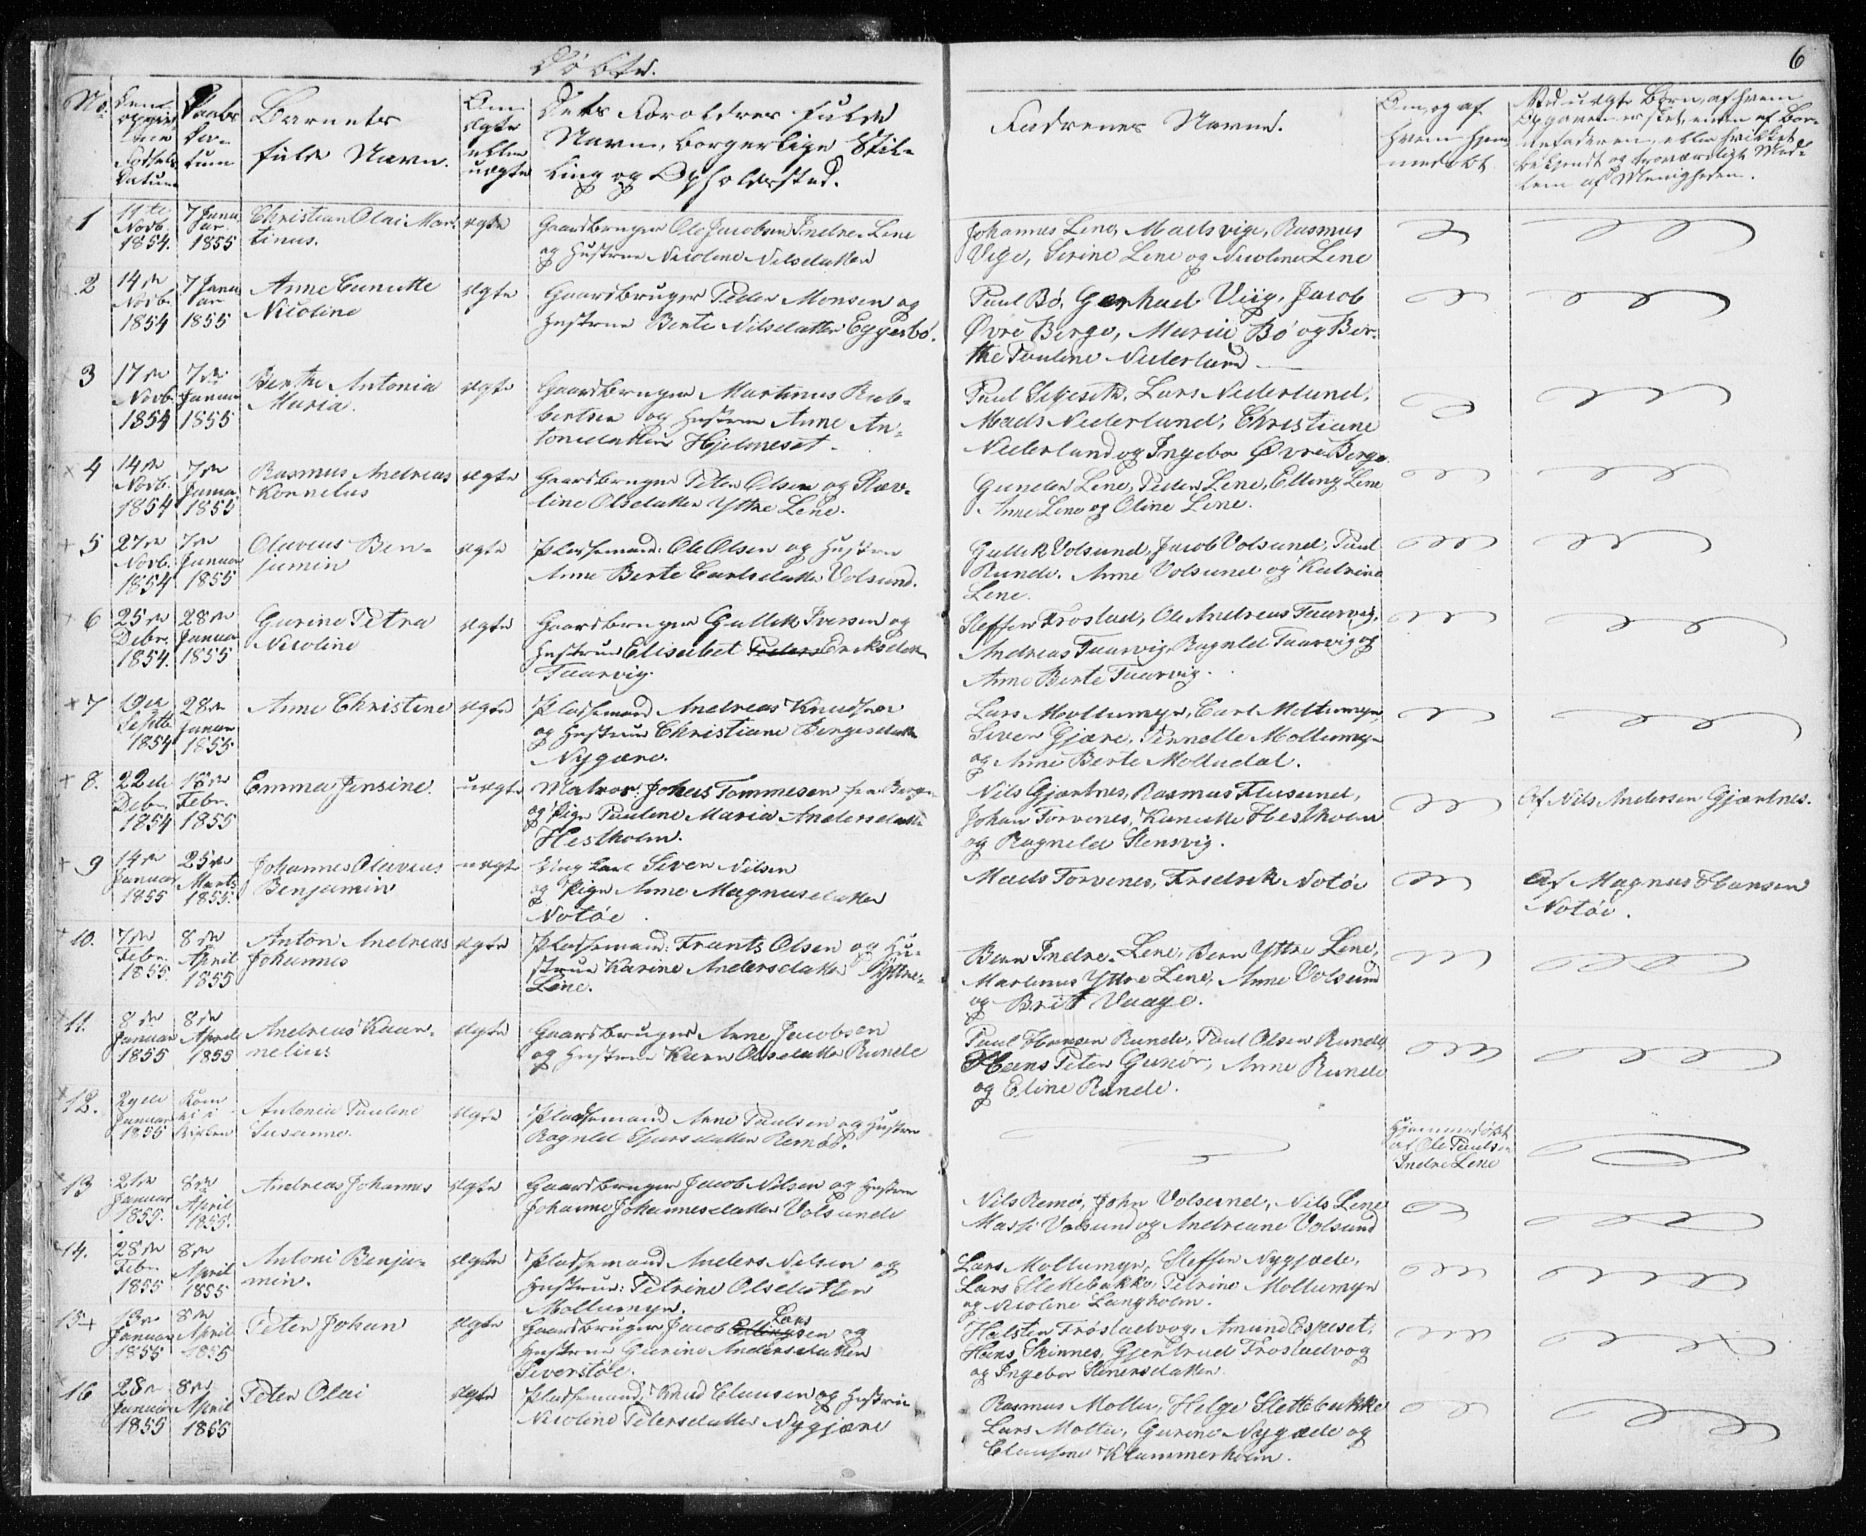 Døbte.
6
No.
Barnets
fulde Navn.
Om
ægte
eller
uægte
Dets Forældres fulde
Navn, borgerlige Stil-
ling og Opholdssted.
Faddrenes Navne.
Om, og af
hvem hjem-
medøbt
1
11te
Novb.
1854.
7 Janu
ar
1855
Christian Olai Mar-
tinus.
ægte
Gaardbruger Ole Jacobsen Indre Lene
og Hustrue Nicoline Nilsdatter
Johannes Lene, Mads vige, Rasmus
Vige, Sirine Lene og Nicoline Lene
2
14de
Novb.
1854
7 Janu
ar
1855
Anne Cunutte
Nicoline
ægte
Gaardbruger Peder Monsen og
Hustrue Berte Nilsdatter Eggesbö.
Paul Bö, Gerhad Viig, Jacob
Øvre Berge, Marie Bö og Ber-
the Pauline Nederland
3
17de
Novb.
1854
7de
Januar
1855
Berthe Antonia
Maria.
ægte
Gaardbruger Martinus Rub-
bertsen og Hustrue Anne An-
tonsdatter Hjelmeset.
Paul Lars Nederland,
Mads Nederland, Christiane
Nederland og Ingebor Øvre Berge.
4
14de
Novb.
1854
7de
Januar
1855
Rasmus Andreas
Kornelus
ægte
Gaardbruger Peter Olsen og
Olsdatter Yttre Lene.
Gunder Lene, Peder Lene, Elling Lene
Anne Lene og Oline Lene.
5
27de
Novb.
1854
7de
Januar
1855
Olavius Ben-
jamin
ægte
Pladsemand: Ole Olsen og Hustrue
Anne Berte Carlsdatter Volsund.
Gullik Volsund, Jacob Volsund, Paul
Runde. Anne Volsund og Katrine
Lene.
6
25de
Debr.
1854.
28de
Januar
1855
Gurine Petra
Nicoline
ægte
Gaardbruger Gullik Iversen og
Hustrue Elisabet Peders Eriksdatter
Taarvig.
Steffen Frostad, Ole Andreas Taarvig,
Andreas Taarvig Ragnild Taarvig og
Anne Berte Taarvig.
7
19de
Septb.
1854
28de
Januar
1855
Anne Christine
ægte
Pladsemand Andreas Knudsen
og Hustrue Christiane Bergesdatter
Nygære.
Lars Moltumyr, Carl Moltumyr,
Siver Gjære, Pernelle Moltumyr
og Anne Berte Moltudal.
8.
22de
Debr.
1854
18de
Febr.
1855
Emma Jensine.
uægte
Matros: Johns Tommesen fra Bergen
og Pige Pauline Maria Andersdatter
Hestholm.
Nils Gjærtnes, Rasmus Flusund,
Johan Torvenes, Kanutte Hestholm
og Ragnild Stensvig.
Af Nils Andersen Gjærtnes.
9
14de
Januar
1855
25de
Marts
1855.
Johannes Olavius
Benjamin
uægte
Ung karl Siver Nilsen
og Pige Anne Magnusdatter
Notöe.
Mads Torvenes, Fredrik Notöe
Af Magnus Hansen
Notöe.
10.
7de
Febr.
1855.
8de
April
1855
Anton Andreas
Johannes
ægte
Pladsemand: Frants Olsen og Hu-
strue Karine Andersdatter Yttre-
Lene.
Bern Indre-Lene, Bern Yttre Lene,
Martinus Yttre Lene, Anne Volsund
og Brit Vaage.
11.
8de
Januar
1855
8de
April
1855
Andreas Kaar-
nelius
ægte
Gaardbruger Arne Jacobsen
og Hustrue Karn Olsdatter Runde
Paul Hansen Runde, Paul Olsen Runde,
Hans Peter Anne Runde
og Eline Runde.
12.
29de
Januar
1855
Antonia Pauline
Susanne.
ægte
Pladsemand Arne Paulsen og Hustrue
Ragnild Remöe.
Hjemmedøbt
af Ole Paulsen
Indre Lene
13
21de
Januar
1855.
8de
April
1855.
Andreas Johannes
ægte
Gaardbruger Jacob Nilsen og Hustrue
Johanne Johannesdatter Volsunde
Nils Remö, John Volsund, Nils Lene
Marti Volsund og Andreane Volsund
14.
28de
Febr.
1855
8de
April
1855
Antoni Benja-
min.
ægte
Pladsemand Anders Nilsen og
Hustrue: Petrine Olsdatter
Moltumyr.
Lars Moltumyr, Steffen Nygjæde,
Lars Slettebakke Petrine Moltumyr
og Nicoline Langholm.
15
13de
Januar
1855
8de
April
1855
Peter Johan
ægte
Lars
Gaardbruger Jacob Ellingsen og
Hustrue Gurine Andersdatter
Siverstöe.
Holsten Fröstadvog, Amund Espeset,
Hans Skinnes, Gjertrud Frostadvog
og Ingebor Stenersdatter
16
28de
Januar
1855
8de
April
1855
Peter Olai
ægte
Pladsemand: Knud Clausen og Hustrue
Nicoline Petersdatter Nygjære
Rasmus Moltu, Helge Slettebakke
Lars Moltu, Gurine Nygæde og
Clausine Klammerholm.